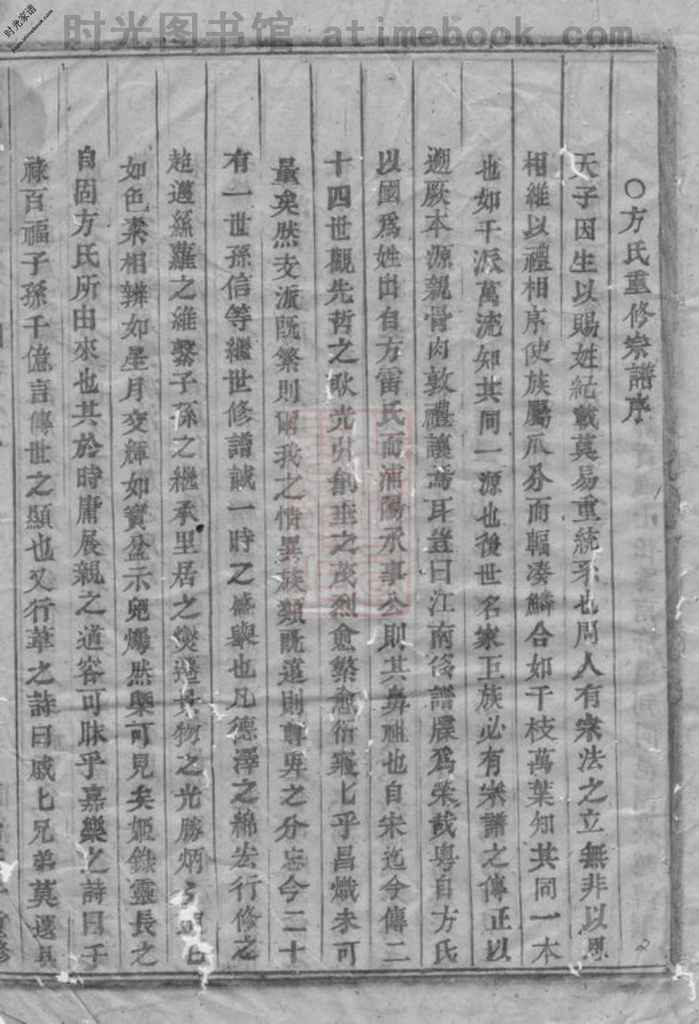 时光图书馆 www.atimebook.com
时光家谱
www.atimebook.com
○方氏重修宗譜序
天子因生以賜姓紀載莫易重統系也周人有宗法之立無非以恩
相維以禮相序使族屬瓜分而輻凑鱗合如千枝萬葉知其同一本
也如千派萬流知其同一源也後世名家巨族必有宗譜之傳正以
遡厥本源親骨肉敦禮讓焉耳豈曰江南後譜牒爲榮哉粤自方氏
以國爲姓出自方雷氏而浦陽承事公則其鼻祖也自宋迄今傳二
十四世觀先哲之耿光引創垂之茂烈愈繁愈衍蕤匕乎昌熾未可
量矣然支派既繁則爾我之情異族類既蕃則尊卑之分忘今二十
有一世孫信等繼世修譜誠一時之盛舉也凡德澤之綿宏行修之
超邁絲蘿之維繫子孫之繼承里居之 景物之光勝炳
如色素相辨如星月交輝如寶盆示兒燭然舉可見矣姬錄靈長之
自固方氏所由來也其於時庸展親之道容可昧乎嘉樂之詩曰子
祿百福子孫千億言傳世之顯也又行葦之詩曰戚匕兄弟莫遠具